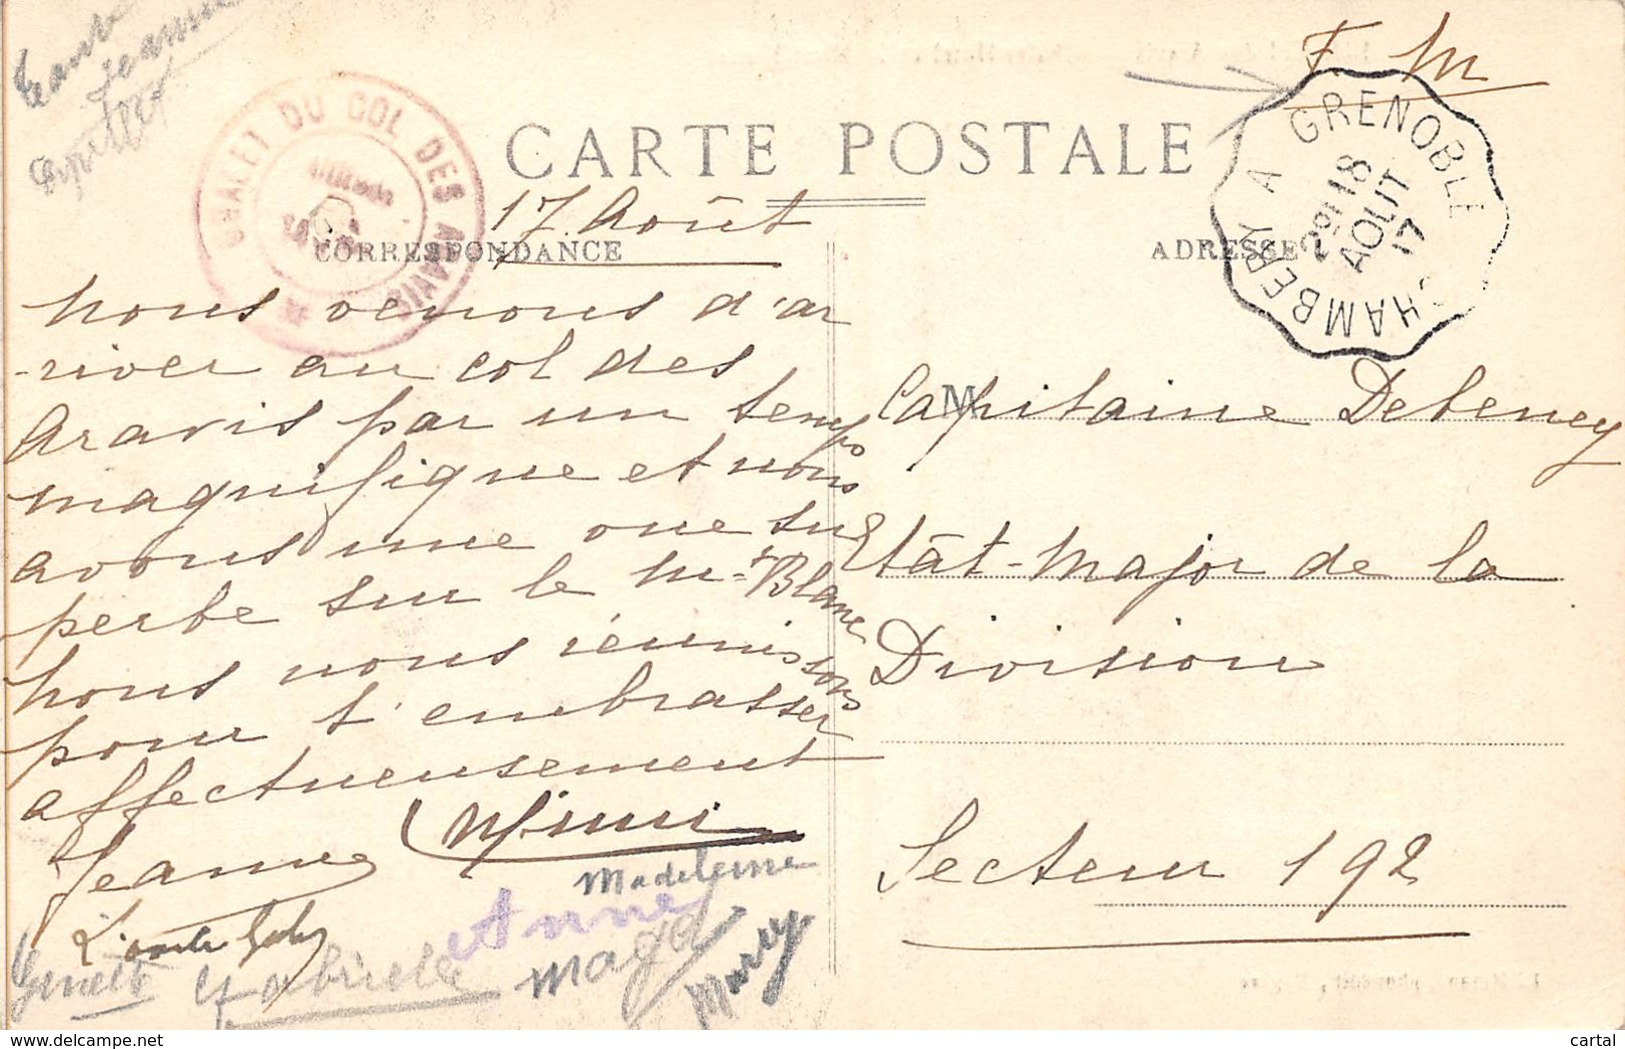 Jeanne
F. M
CHALET DU COL DES ARAVIS
Altitude
CARTE POSTALE
CHAMBERY A GRENOBLE
2º 18
AOUT
17
17 Août
CORRESPONDANCE
ADRESSE
nous venons d'ar
-river au col des
Aravis par un temps
magnifique et nous
avons une vue su
perbe sur le Mt Blanc
nous nous réunissons
pour t'embrasser
affectueusement
M Capitaine Debeney
Etât-Major de la
Division
Secteur 192
Mimi
Jeanne
Madeleine
Anne
Gabrielle
Magd
Mary
delcampe.net
cartal